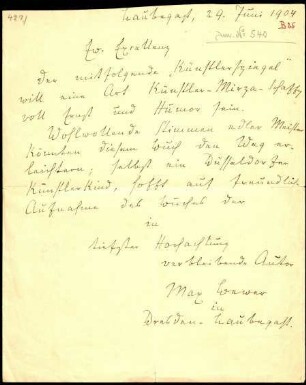 4291
Laubegast, 29. Juni 1904
B26
zum. Nr. 540
Ew. Exzellenz
der mitfolgende "Künstlerspiegel"
will eine Art Künstler-Mirza-Schaffy
voll Ernst und Humor sein.
Wohlwollende Stimmen edler Meister
könnten diesem Buch den Weg er-
leichtern; selbst ein Düsseldorfer
Künstlerkind, hofft auf freundliche
Aufnahme des Buches der
in
tiefster Hochachtung
verbleibende Autor
Max Bewer
in
Dresden-Laubegast.